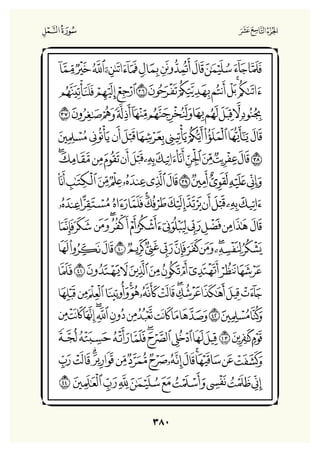 سُورَةُ النَّمْلِ
الجُزْءُ التَّاسِعَ عَشَرَ
فَلَمَّا جَآءَ سُلَيْمَٰنَ قَالَ أَتُمِدُّونَنِ بِمَالٍ فَمَآ ءَاتَىٰنِۦَ ٱللَّهُ خَيْرٌ مِّمَّآ
ءَاتَىٰكُم بَلْ أَنتُم بِهَدِيَّتِكُمْ تَفْرَحُونَ ٣٦ ٱرْجِعْ إِلَيْهِمْ فَلَنَأْتِيَنَّهُم
بِجُنُودٍ لَّا قِبَلَ لَهُم بِهَا وَلَنُخْرِجَنَّهُم مِّنْهَآ أَذِلَّةً وَهُمْ صَٰغِرُونَ ٣٧
قَالَ يَٰٓأَيُّهَا ٱلْمَلَؤُا۟ أَيُّكُمْ يَأْتِينِى بِعَرْشِهَا قَبْلَ أَن يَأْتُونِى مُسْلِمِينَ
٣٨ قَالَ عِفْرِيتٌ مِّنَ ٱلْجِنِّ أَنَا۠ ءَاتِيكَ بِهِۦ قَبْلَ أَن تَقُومَ مِن مَّقَامِكَ ۖ
وَإِنِّى عَلَيْهِ لَقَوِىٌّ أَمِينٌ ٣٩ قَالَ ٱلَّذِى عِندَهُۥ عِلْمٌ مِّنَ ٱلْكِتَٰبِ أَنَا۠
ءَاتِيكَ بِهِۦ قَبْلَ أَن يَرْتَدَّ إِلَيْكَ طَرْفُكَ ۚ فَلَمَّا رَءَاهُ مُسْتَقِرًّا عِندَهُۥ
قَالَ هَٰذَا مِن فَضْلِ رَبِّى لِيَبْلُوَنِىٓ ءَأَشْكُرُ أَمْ أَكْفُرُ ۖ وَمَن شَكَرَ فَإِنَّمَا
يَشْكُرُ لِنَفْسِهِۦ ۖ وَمَن كَفَرَ فَإِنَّ رَبِّى غَنِىٌّ كَرِيمٌ ٤٠ قَالَ نَكِّرُوا۟ لَهَا
عَرْشَهَا نَنظُرْ أَتَهْتَدِىٓ أَمْ تَكُونُ مِنَ ٱلَّذِينَ لَا يَهْتَدُونَ ٤١ فَلَمَّا
جَآءَتْ قِيلَ أَهَٰكَذَا عَرْشُكِ ۖ قَالَتْ كَأَنَّهُۥ هُوَ ۚ وَأُوتِينَا ٱلْعِلْمَ مِن قَبْلِهَا
وَكُنَّا مُسْلِمِينَ ٤٢ وَصَدَّهَا مَا كَانَت تَّعْبُدُ مِن دُونِ ٱللَّهِ ۖ إِنَّهَا كَانَتْ مِن
قَوْمٍ كَٰفِرِينَ ٤٣ قِيلَ لَهَا ٱدْخُلِى ٱلصَّرْحَ ۖ فَلَمَّا رَأَتْهُ حَسِبَتْهُ لُجَّةً
وَكَشَفَتْ عَن سَاقَيْهَا ۚ قَالَ إِنَّهُۥ صَرْحٌ مُّمَرَّدٌ مِّن قَوَارِيرَ ۗ قَالَتْ رَبِّ
إِنِّى ظَلَمْتُ نَفْسِى وَأَسْلَمْتُ مَعَ سُلَيْمَٰنَ لِلَّهِ رَبِّ ٱلْعَٰلَمِينَ ٤٤
٣٨٠